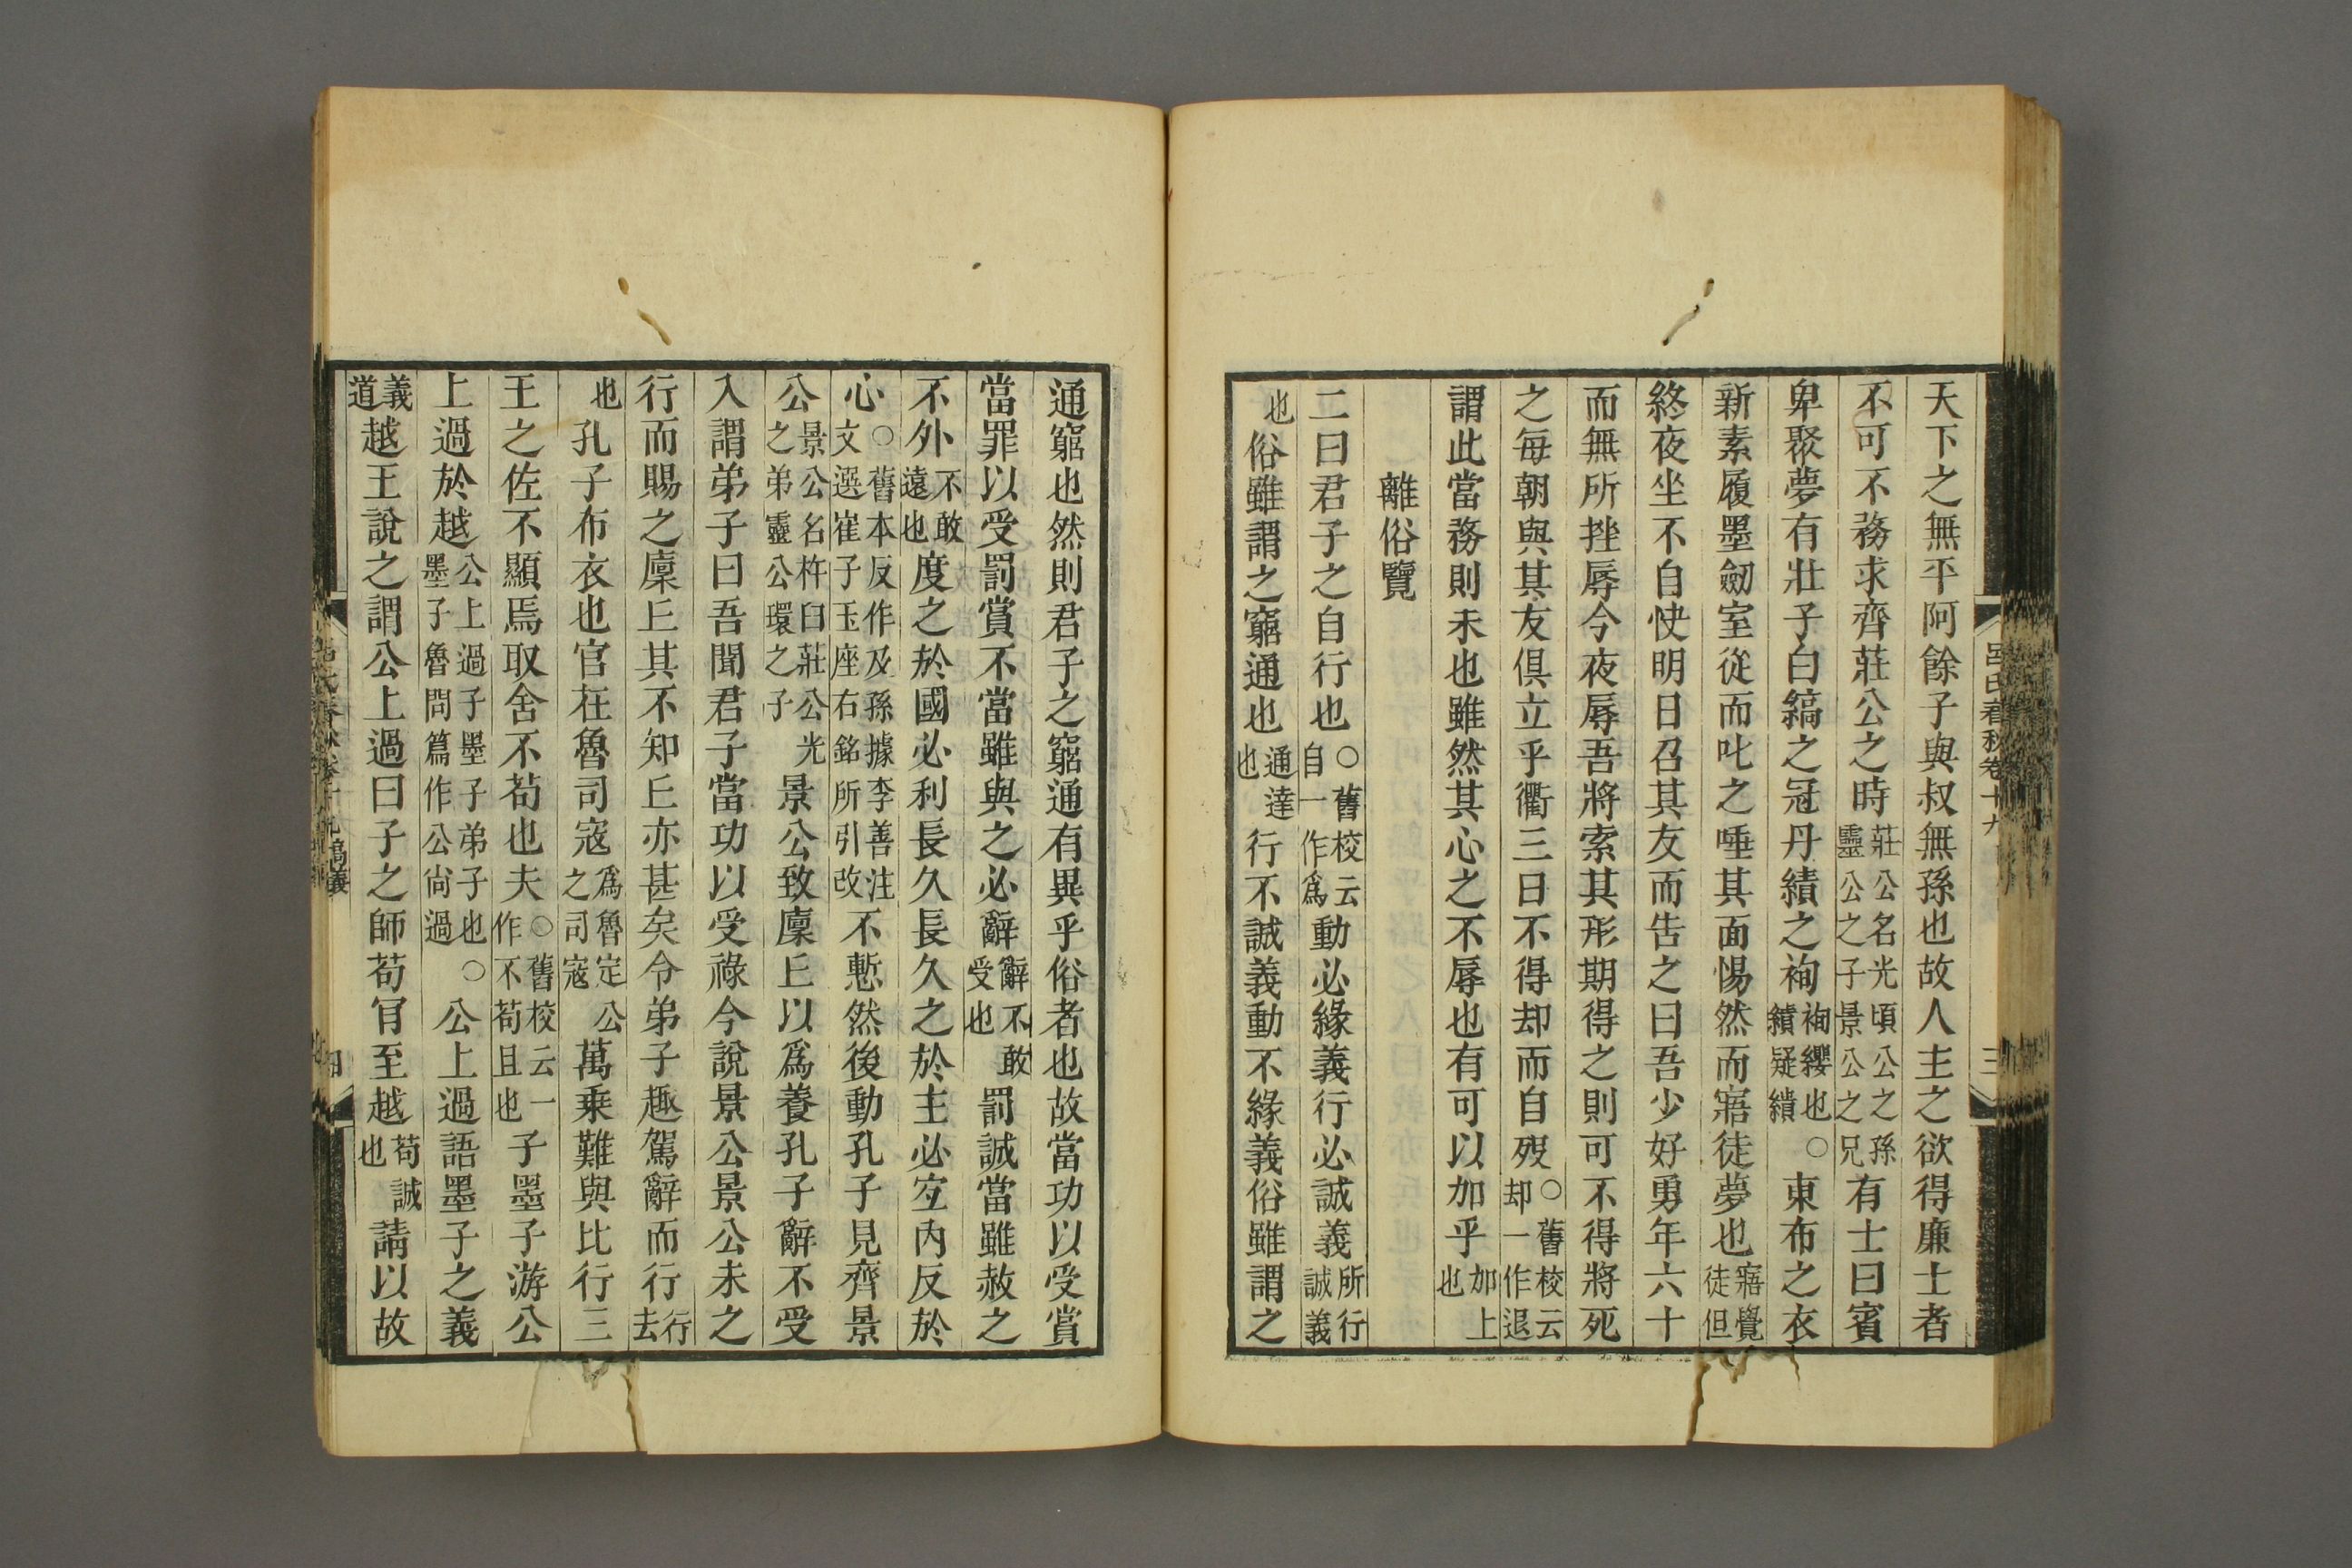 呂氏春秋卷十九 三
天下之無平阿餘子與叔無孫也故人主之欲得廉士者
不可不務求齊莊公之時莊公名光頃公之孫靈公之子景公之兄有士曰賓
卑聚夢有壯子白縞之冠丹績之袧袧纓也○績疑繢東布之衣
新素履墨劒室從而叱之唾其面惕然而寤徒夢也寤覺徒但
終夜坐不自快明日召其友而告之曰吾少好勇年六十
而無所挫辱今夜辱吾將索其形期得之則可不得將死
之每朝與其友俱立乎衢三日不得却而自殁○舊校云却一作退
謂此當務則未也雖然其心之不辱也有可以加乎加上也
離俗覽
二曰君子之自行也○舊校云自一作爲動必緣義行必誠義所行誠義
也俗雖謂之窮通也通達也行不誠義動不緣義俗雖謂之
通窮也然則君子之窮通有異乎俗者也故當功以受賞
當罪以受罰賞不當雖與之必辭辭不敢受也罰誠當雖赦之
不外不敢遠也度之於國必利長久長久之於主必宜內反於
心○舊本反作及孫據李善注文選崔子玉座右銘所引改不慙然後動孔子見齊景
公景公名杵臼莊公光之弟靈公環之子景公致廩丘以爲養孔子辭不受
入謂弟子曰吾聞君子當功以受祿今說景公景公未之
行而賜之廩丘其不知丘亦甚矣令弟子趣駕辭而行行去
也孔子布衣也官在魯司寇爲魯定公之司寇萬乘難與比行三
王之佐不顯焉取舍不苟也夫○舊校云一作不苟且也子墨子游公
上過於越公上過子墨子弟子也○墨子魯問篇作公尚過公上過語墨子之義
義道越王說之謂公上過曰子之師苟肎至越苟誠也請以故
四